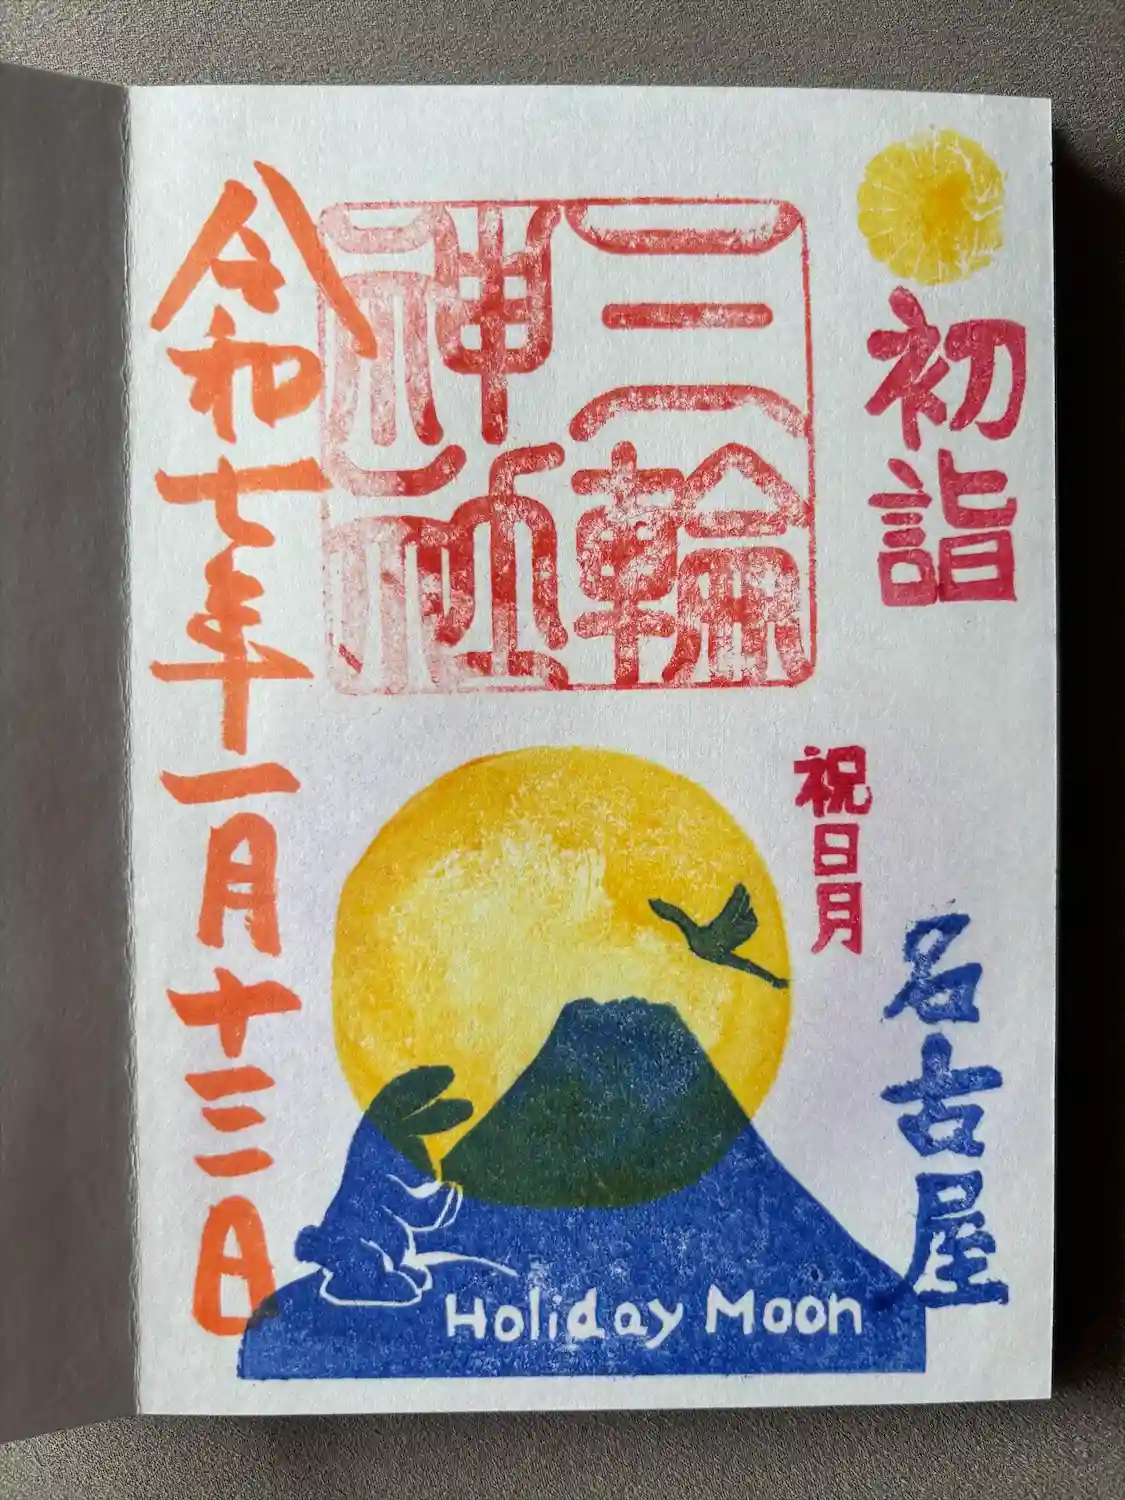 初詣
三輪神社
祝日月
名古屋
令和七年一月十三日
Holiday Moon